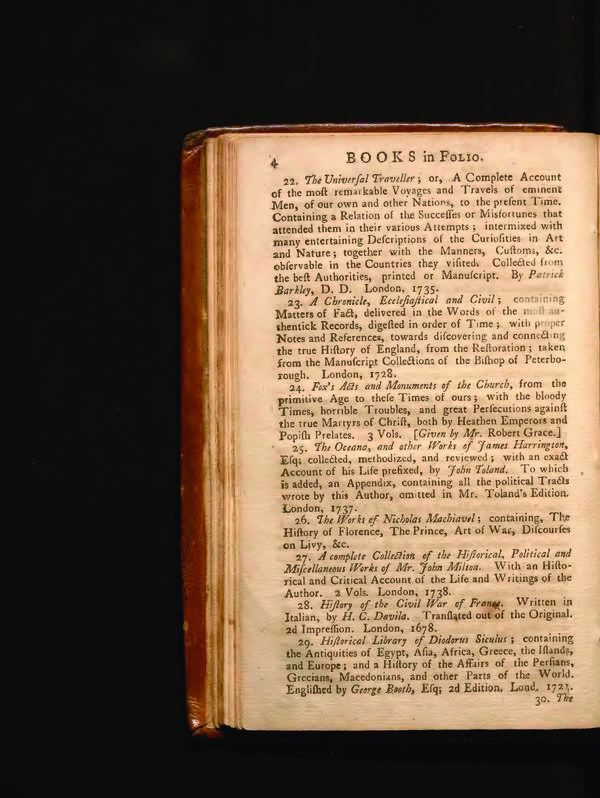 4 BOOKS in FOLIO.
22. The Univerſal Traveller; or, A Complete Account
of the moſt remarkable Voyages and Travels of eminent
Men, of our own and other Nations, to the preſent Time.
Containing a Relation of the Succeſſes or Misfortunes that
attended them in their various Attempts; intermixed with
many entertaining Deſcriptions of the Curioſities in Art
and Nature; together with the Manners, Cuſtoms, &c.
obſervable in the Countries they viſited. Collected from
the beſt Authorities, printed or Manuſcript. By Patrick
Barkley, D. D. London, 1735.
23. A Chronicle, Eccleſiaſtical and Civil; containing
Matters of Fact, delivered in the Words of the moſt au-
thentick Records, digeſted in order of Time; with proper
Notes and References, towards diſcovering and connecting
the true Hiſtory of England, from the Reſtoration; taken
from the Manuſcript Collections of the Biſhop of Peterbo-
rough. London, 1728.
24. Fox's Acts and Monuments of the Church, from the
primitive Age to theſe Times of ours; with the bloody
Times, horrible Troubles, and great Perſecutions againſt
the true Martyrs of Chriſt, both by Heathen Emperors and
Popiſh Prelates. 3 Vols. [Given by Mr. Robert Grace.]
25. The Oceana, and other Works of James Harrington,
Eſq; collected, methodized, and reviewed; with an exact
Account of his Life prefixed, by John Toland. To which
is added, an Appendix, containing all the political Tracts
wrote by this Author, omitted in Mr. Toland's Edition.
London, 1737.
26. The Works of Nicholas Machiavel; containing, The
Hiſtory of Florence, The Prince, Art of War, Diſcourſes
on Livy, &c.
27. A complete Collection of the Hiſtorical, Political and
Miſcellaneous Works of Mr. John Milton. With an Hiſto-
rical and Critical Account of the Life and Writings of the
Author. 2 Vols. London, 1738.
28. Hiſtory of the Civil War of France. Written in
Italian, by H. C. Davila. Tranſlated out of the Original.
2d Impreſſion. London, 1678.
29. Hiſtorical Library of Diodorus Siculus; containing
the Antiquities of Egypt, Aſia, Africa, Greece, the Iſlands,
and Europe; and a Hiſtory of the Affairs of the Perſians,
Grecians, Macedonians, and other Parts of the World.
Engliſhed by George Booth, Eſq; 2d Edition. Lond.
30. The